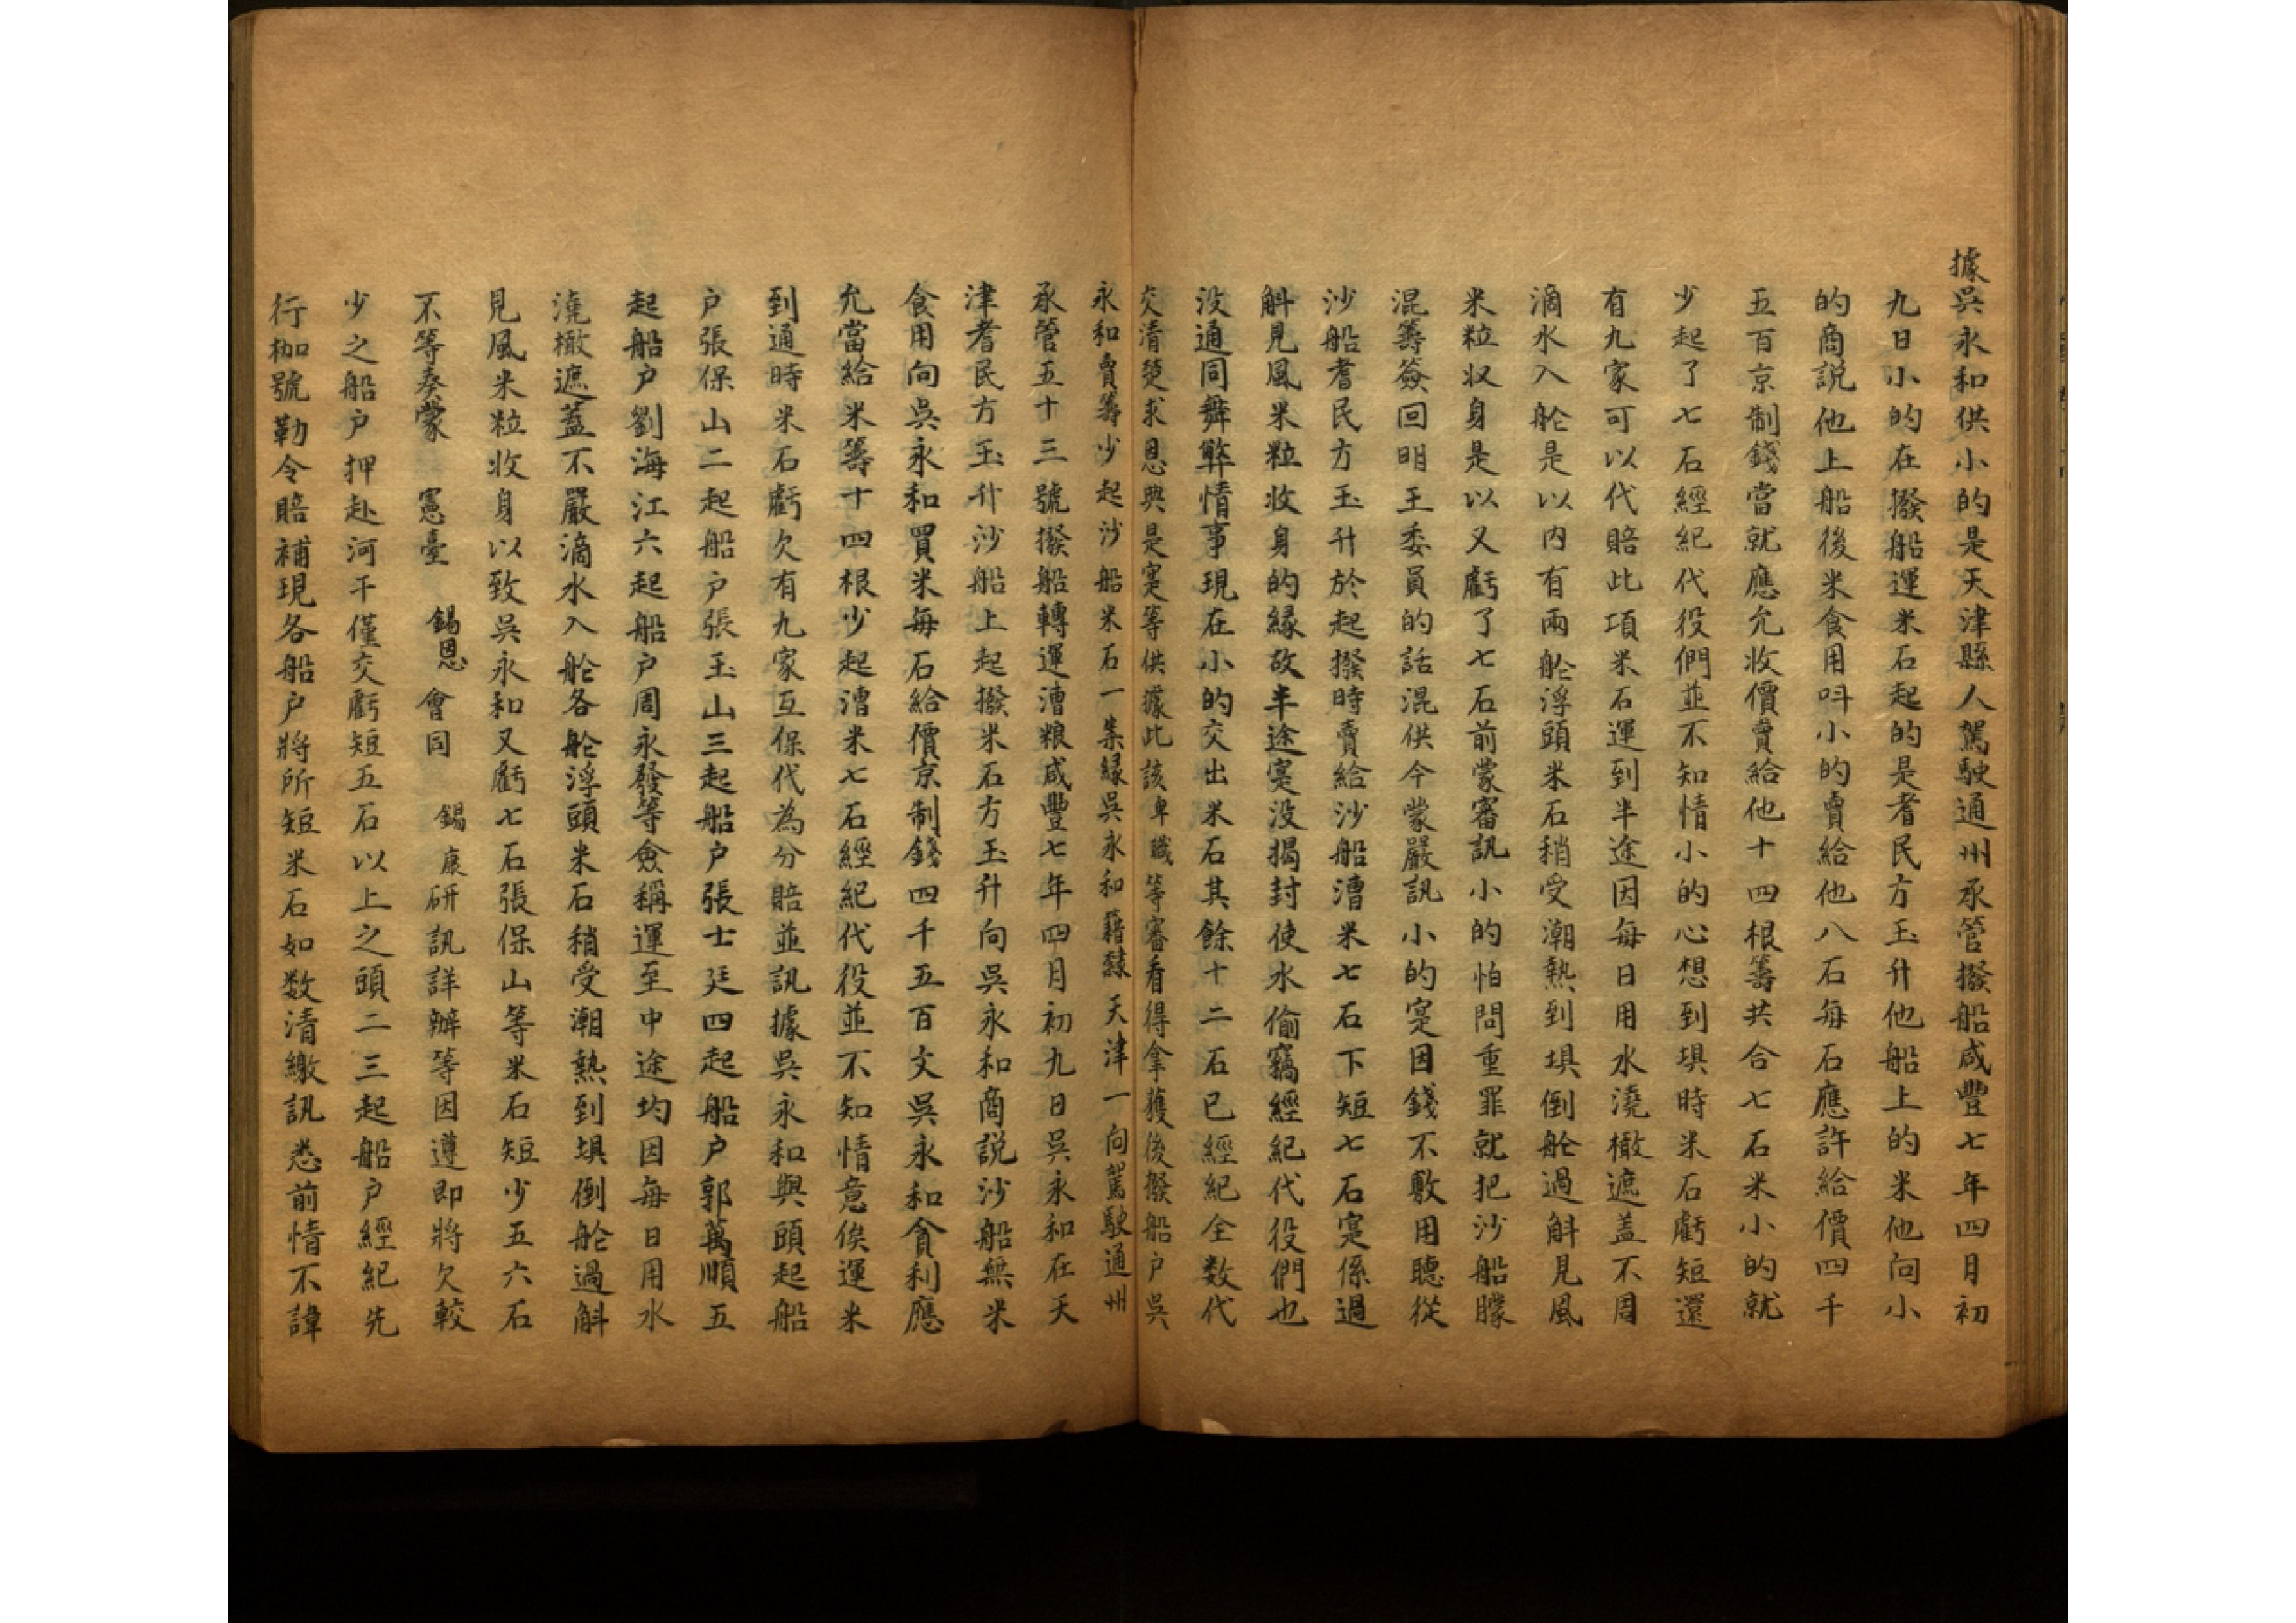 據吳永和供小的是天津縣人駕駛通州承管撥船咸豐七年四月初
九日小的在撥船運米石起的是耆民方玉升他船上的米他向小
的商説他上船後米食用呌小的賣給他八石每石應許給價四千
五百京制錢當就應允收價賣給他十四根籌共合七石米小的就
少起了七石經紀代役們並不知情小的心想到埧時米石虧短還
有九家可以代賠此項米石運到半途因每日用水澆橄遮盖不周
滴水入舱是以内有兩舱浮頭米石稍受潮熱到埧倒舱過斛見風
米粒収身是以又虧了七石前蒙審訊小的怕問重罪就把沙船朦
混籌簽回明王委員的話混供今蒙嚴訊小的寔因錢不敷用聽從
沙船耆民方玉升於起撥時賣給沙船漕米七石下短七石寔係過
斛見風米粒收身的緣故半途寔没揭封使水偷竊經紀代役們也
没通同舞弊情事現在小的交出米石其餘十二石已經紀全数代
交清楚求恩典是寔等供據此該卑職等審看得拿獲後撥船户吳
永和賣籌少起沙船米石一案緣吳永和籍隸天津一向駕駛通州
承管五十三號撥船轉運漕粮咸豐七年四月初九日吳永和在天
津耆民方玉升沙船上起撥米石方玉升向吳永和商説沙船無米
食用向吳永和買米每石給價京制錢四千五百文吳永和貪利應
允當給米籌十四根少起漕米七石經紀代役並不知情意俟運米
到通時米石虧欠有九家互保代為分賠並訊據吳永和與頭起船
户張保山二起船户張玉山三起船户張士廷四起船户郭萬順五
起船户劉海江六起船户周永發等僉稱運至中途均因每日用水
澆橄遮蓋不嚴滴水入舱各舱浮頭米石稍受潮熱到埧倒舱過斛
見風米粒收身以致吳永和又虧七石張保山等米石短少五六石
不等奏蒙 憲臺 錫恩 會同 錫康研訊詳辦等因遵即將欠較
少之船户押赴河干僅交虧短五石以上之頭二三起船户經紀先
行枷號勒令賠補現各船户將所短米石如数清繳訊悉前情不諱